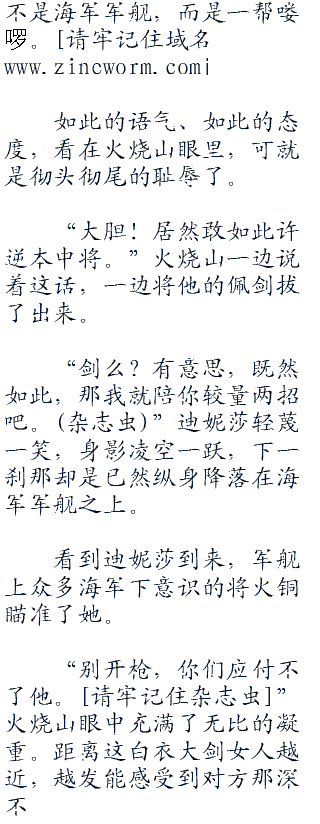 不是海军军舰，而是一帮喽
啰。[请牢记住域名
www.zincworm.com|
如此的语气、如此的态
度，看在火烧山眼里，可就
是彻头彻尾的耻辱了。
“大胆！居然敢如此许
逆本中将。”火烧山一边说
着这话，一边将他的佩剑拔
了出来。
“剑么？有意思，既然
如此，那我就陪你较量两招
吧。(杂志虫)”迪妮莎轻蔑
一笑，身影凌空一跃，下一
刹那却是已然纵身降落在海
军军舰之上。
看到迪妮莎到来，军舰
上众多海军下意识的将火铜
瞄准了她。
“别开枪，你们应付不
了他。[请牢记住杂志虫]”
火烧山眼中充满了无比的凝
重。距离这白衣大剑女人越
近，越发能感受到对方那深
不